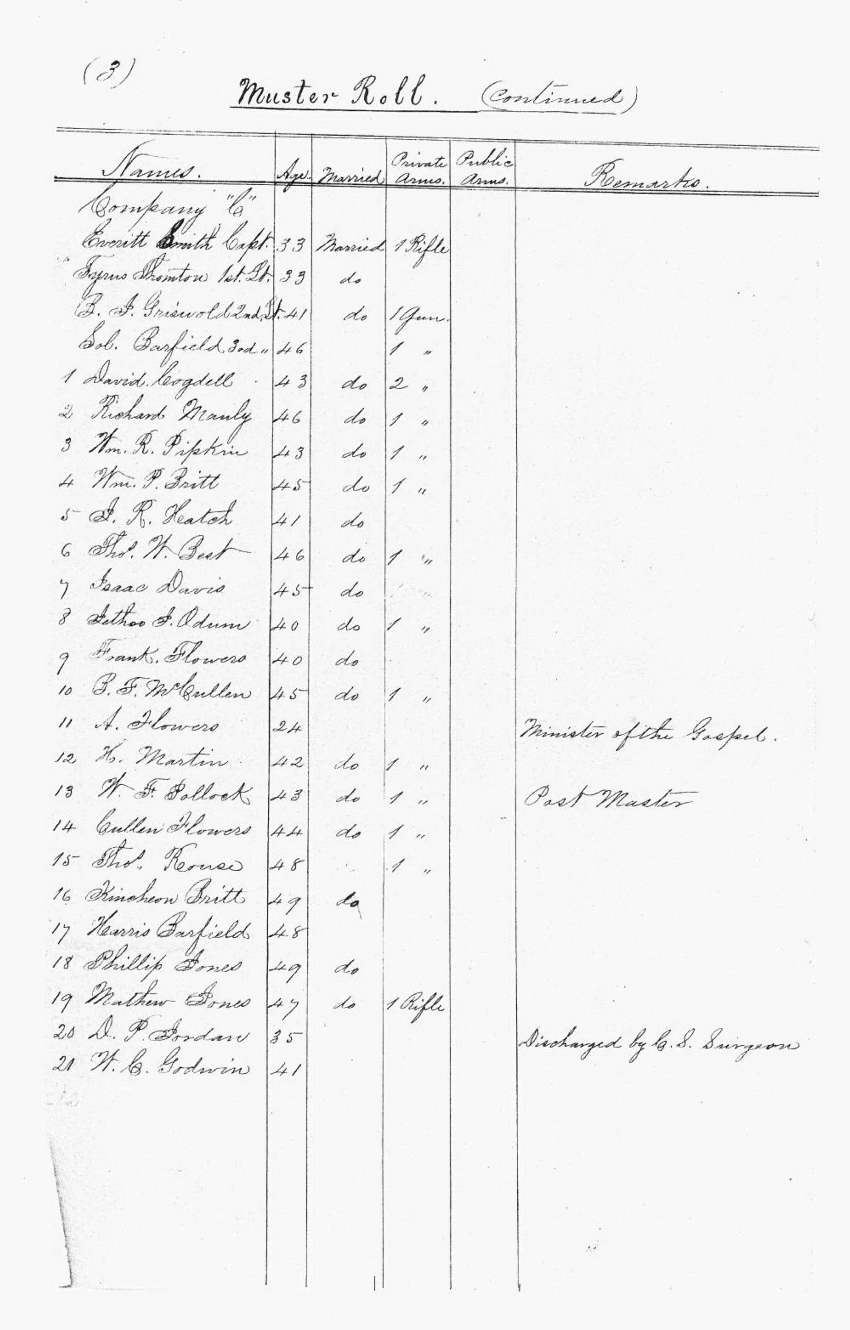 (3)
Muster Roll. (Continued)
Names. Age. Married Private Arms. Public Arms. Remarks.
Company "C"
Everitt Smith Capt. 33 Married 1 Rifle
Tyrus Thornton 1st. Lt. 33 do
B. F. Griswold 2nd. Lt. 41 do 1 Gun.
Sol. Barfield 3rd " 46 1 "
1 David Cogdell 43 do 2 "
2 Richard Manly 46 do 1 "
3 Wm. R. Pipkin 43 do 1 "
4 Wm. P. Britt 45 do 1 "
5 J. R. Hatch 41 do
6 Thos. W. Best 46 do 1 "
7 Isaac Davis 45 do
8 J. Odum 40 do 1 "
9 Frank. Flowers 40 do
10 B. F. McCullen 45 do 1 "
11 A. Flowers 24 Minister of the Gospel.
12 H. Martin 42 do 1 "
13 W. F. Pollock 43 do 1 " Post Master
14 Cullen Flowers 44 do 1 "
15 Thos. Rouse 48 1 "
16 Kincheon Britt 49 do
17 Harris Barfield 48
18 Phillip Jones 49 do
19 Mathew Jones 47 do 1 Rifle
20 D. P. Jordan 35 Discharged by C. S. Surgeon
21 W. C. Godwin 41